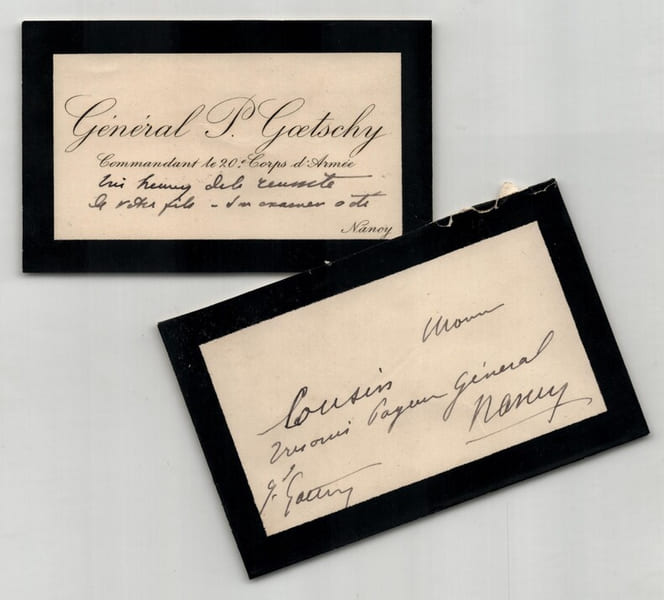 Général P. Gœtschy
Commandant le 20e Corps d'Armée
très heureux de la réussite
de votre fils - son examen
Nancy
Monsieur
Cousin
Trésorier Payeur Général
Nancy
Gal Gœtschy